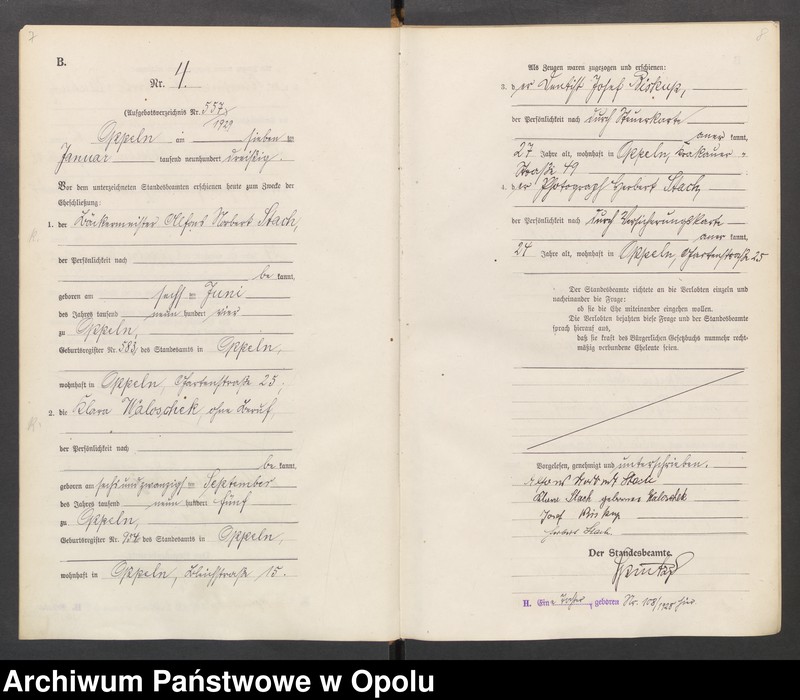 7
B.
Nr. 4.
(Aufgebotsverzeichnis Nr. 557)
1929
Oppeln, am sieben ten
Januar tausend neunhundert dreißig.
Vor dem unterzeichneten Standesbeamten erschienen heute zum Zwecke der
Eheschließung:
1. der Bäckermeister Alfons Norbert Stach,
der Persönlichkeit nach
be kannt,
geboren am sechs ten Juni
des Jahres tausend neun hundert vier
zu Oppeln,
Geburtsregister Nr. 583, des Standesamts in Oppeln,
wohnhaft in Oppeln, Gartenstraße 25;
2. die Klara Waloschek, ohne Beruf,
der Persönlichkeit nach
be kannt,
geboren am sechsundzwanzigs ten September
des Jahres tausend neun hundert fünf
zu Oppeln,
Geburtsregister Nr. des Standesamts in Oppeln,
wohnhaft in Oppeln, 15.
8
Als Zeugen waren zugezogen und erschienen:
3. der Dentist Josef Piskup,
der Persönlichkeit nach durch Steuerkarte
aner kannt,
27 Jahre alt, wohnhaft in Oppeln, Krakauer-
Straße 49
4. der Photograph Herbert Stach,
der Persönlichkeit nach durch Versicherungskarte
aner kannt,
24 Jahre alt, wohnhaft in Oppeln, Gartenstraße 25
Der Standesbeamte richtete an die Verlobten einzeln und
nacheinander die Frage:
ob sie die Ehe miteinander eingehen wollen.
Die Verlobten bejahten diese Frage und der Standesbeamte
sprach hierauf aus,
daß sie kraft des Bürgerlichen Gesetzbuchs nunmehr recht-
mäßig verbundene Eheleute seien.
Vorgelesen, genehmigt und unterschrieben.
Alfons Norbert Stach
Klara Stach geborene Waloschek
Josef Piskup
Herbert Stach
Der Standesbeamte.
H. Eine Tochter, geboren Nr. 108/1928 hier
Archiwum Państwowe w Opolu